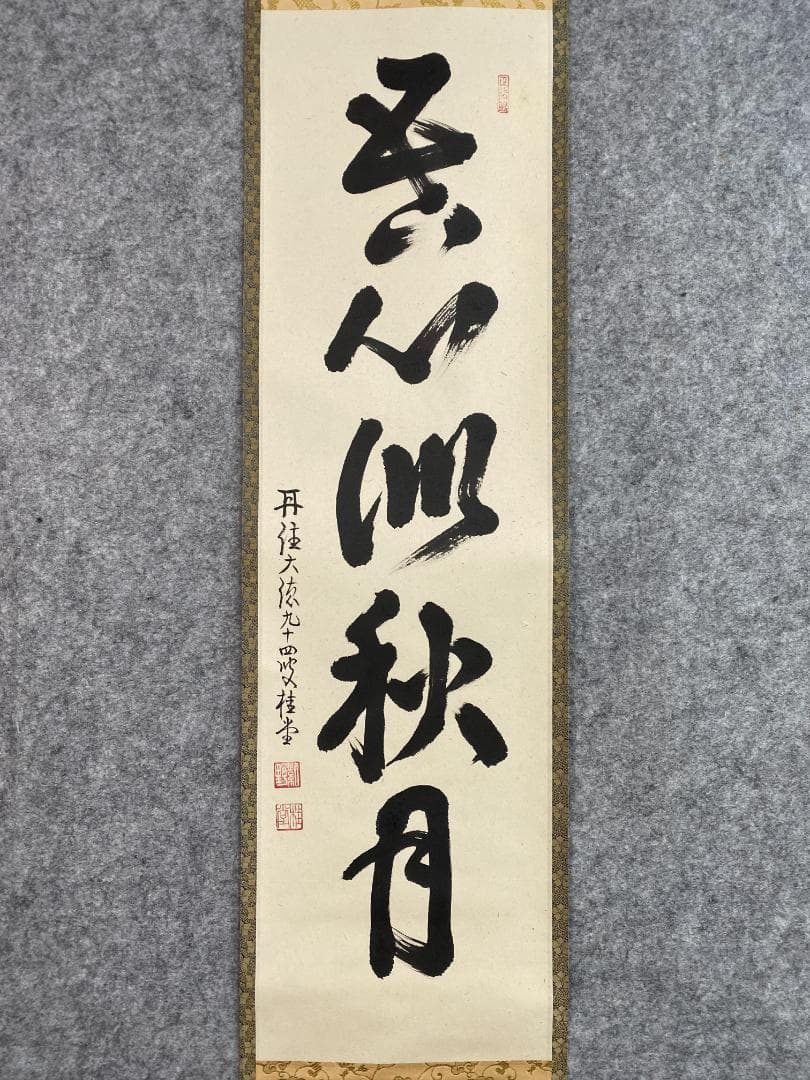 吾心似秋月
再住大徳九十四叟桂堂